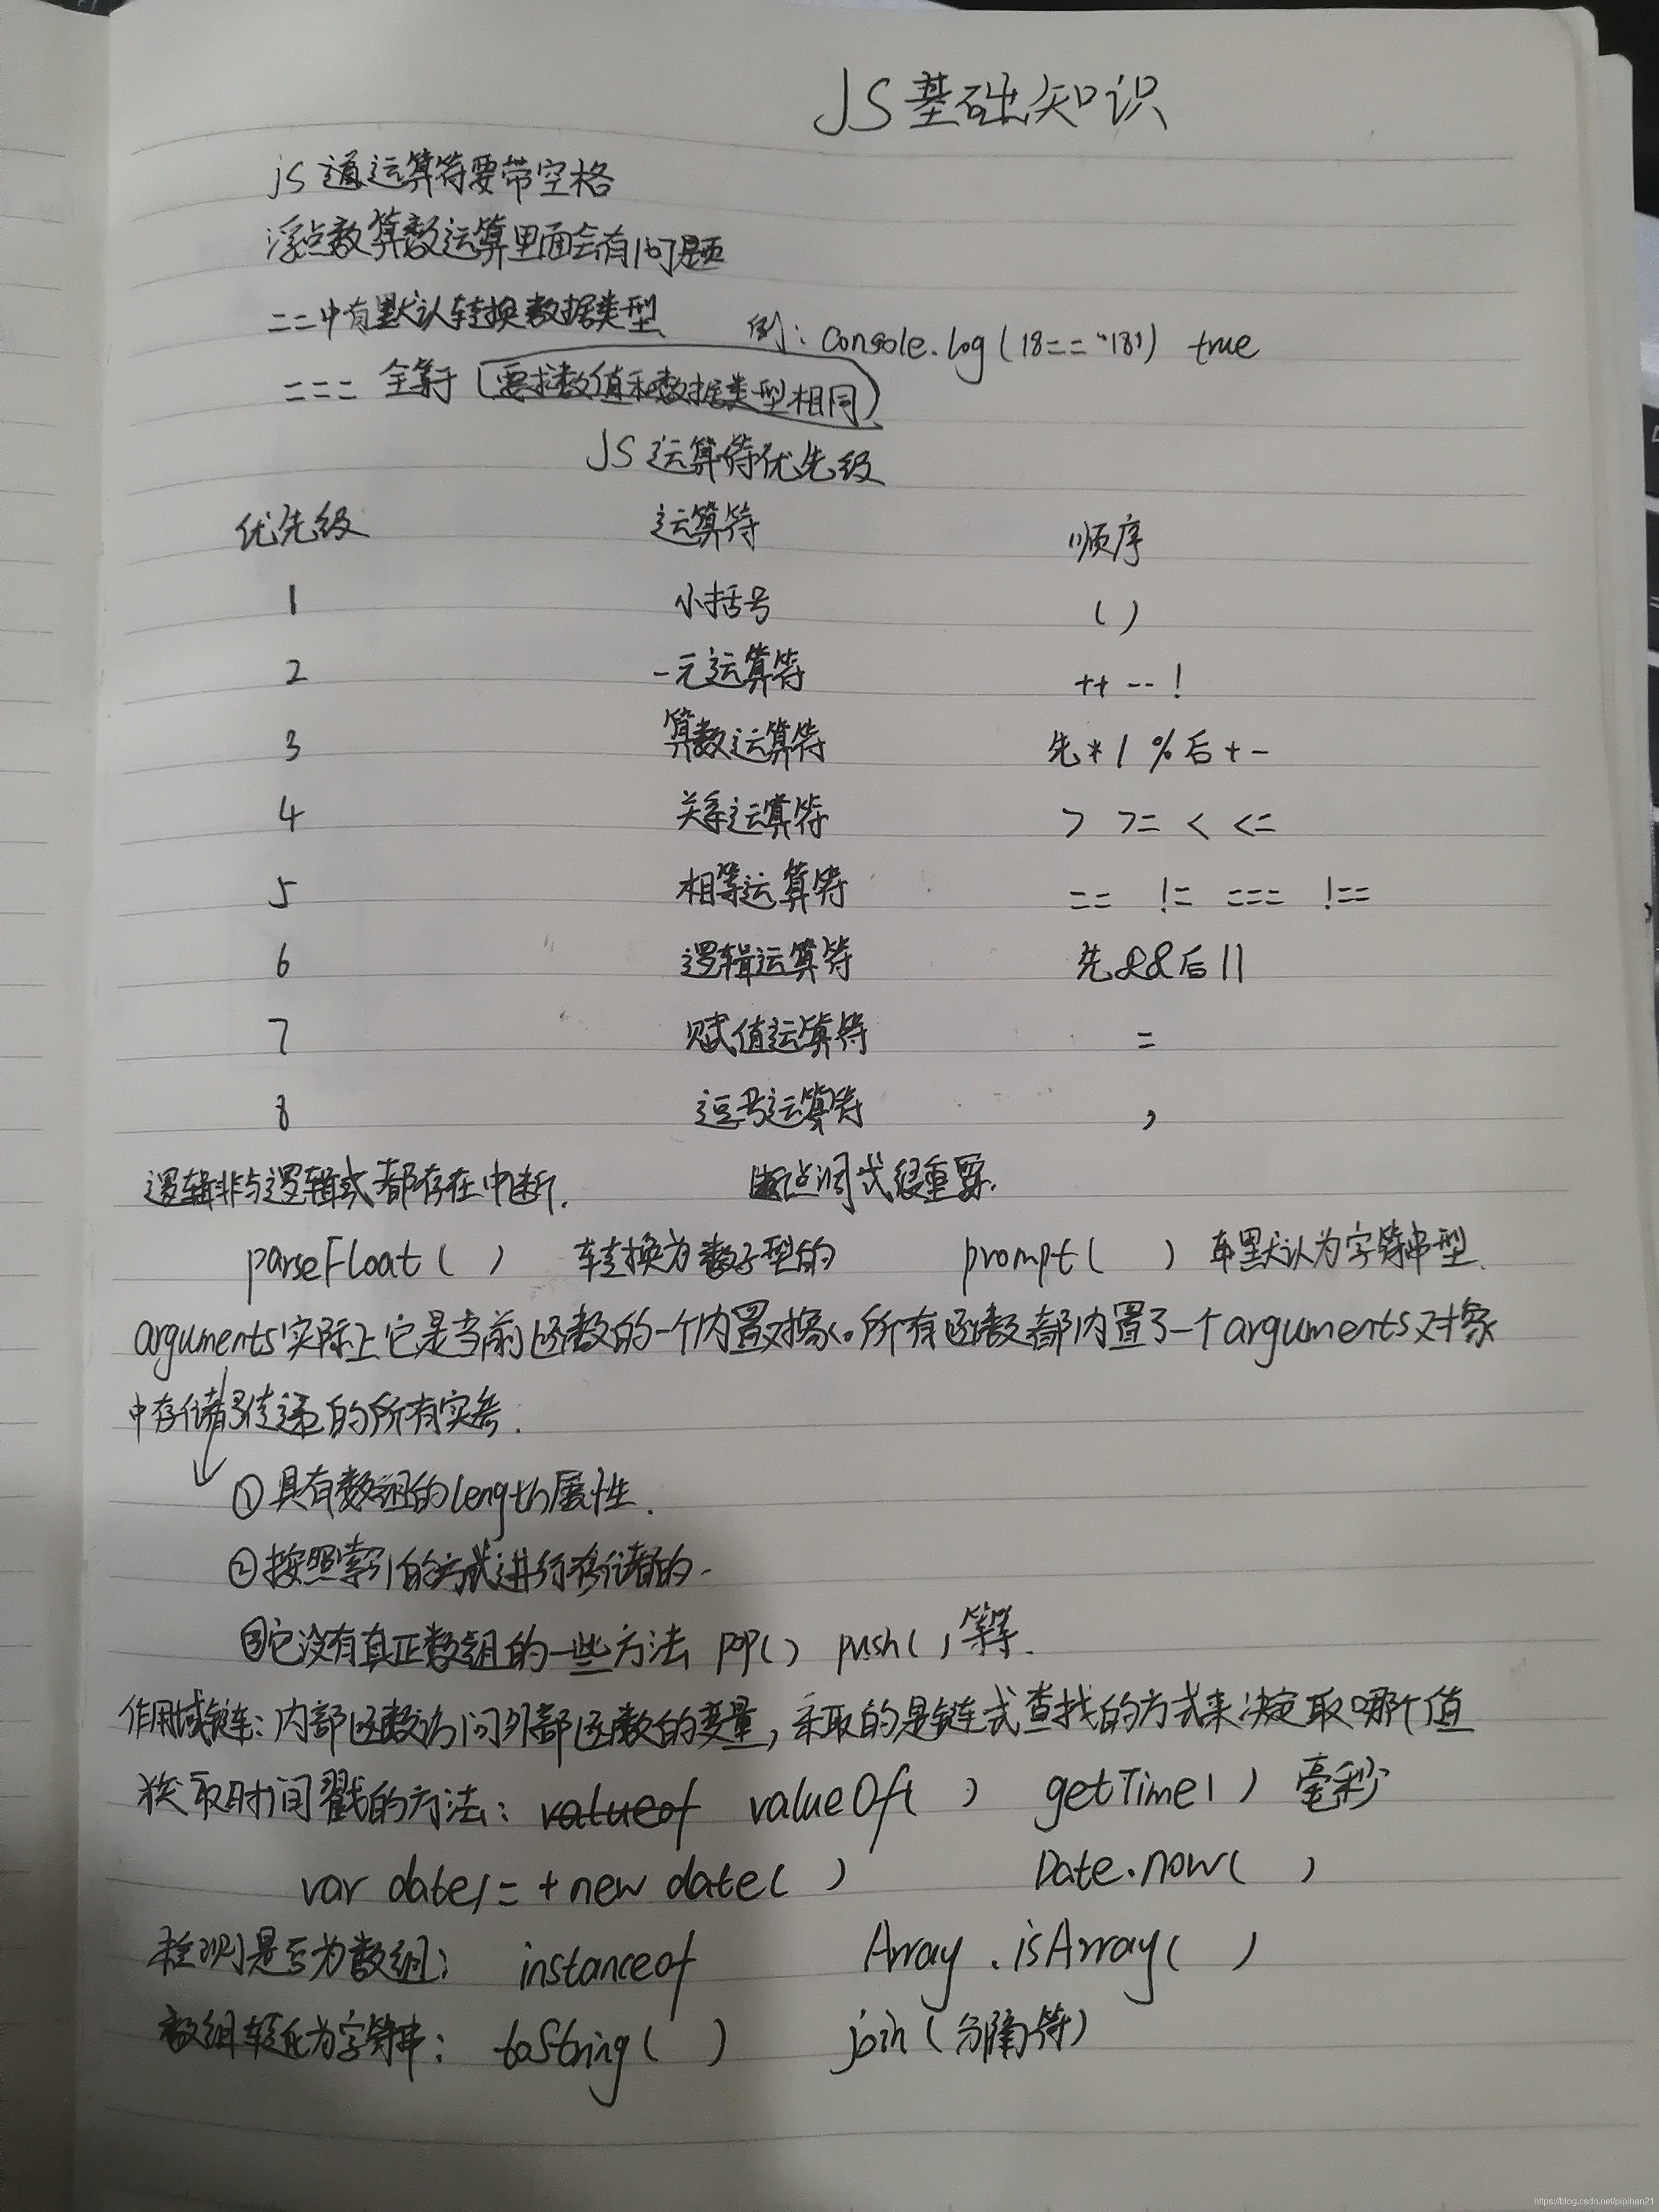 JS基础知识
js 遇运算符要带空格
浮点数算数运算里面会有问题
==中有默认转换数据类型 例：console.log(18=="18") true
=== 全等于(要求数值和数据类型相同)
JS 运算符优先级
优先级 运算符 顺序
1 小括号 ()
2 一元运算符 ++ -- !
3 算数运算符 先* / % 后 + -
4 关系运算符 > >= < <=
5 相等运算符 == != === !==
6 逻辑运算符 先&&后||
7 赋值运算符 =
8 逗号运算符 ,
逻辑非与逻辑或都存在中断. 断点调式很重要.
parseFloat( ) 转换为数子型的 prompt( ) 默认为字符串型.
arguments实际上它是当前函数的一个内置对象。所有函数都内置了一个arguments对象
中存储了传递的所有实参.
①具有数组的length属性.
②按照索引的方式进行存储的.
③它没有真正数组的一些方法 pop() push()等等.
作用域链：内部函数访问外部函数的变量，采取的是链式查找的方式来决定取哪个值
获取时间戳的方法：valueof valueOf( ) getTime( ) 毫秒
var date1= + new date( ) Date.now( )
检测是否为数组： instanceof Array.isArray( )
数组转化为字符串： toString( ) join(分隔符)
https://blog.csdn.net/pipihan21